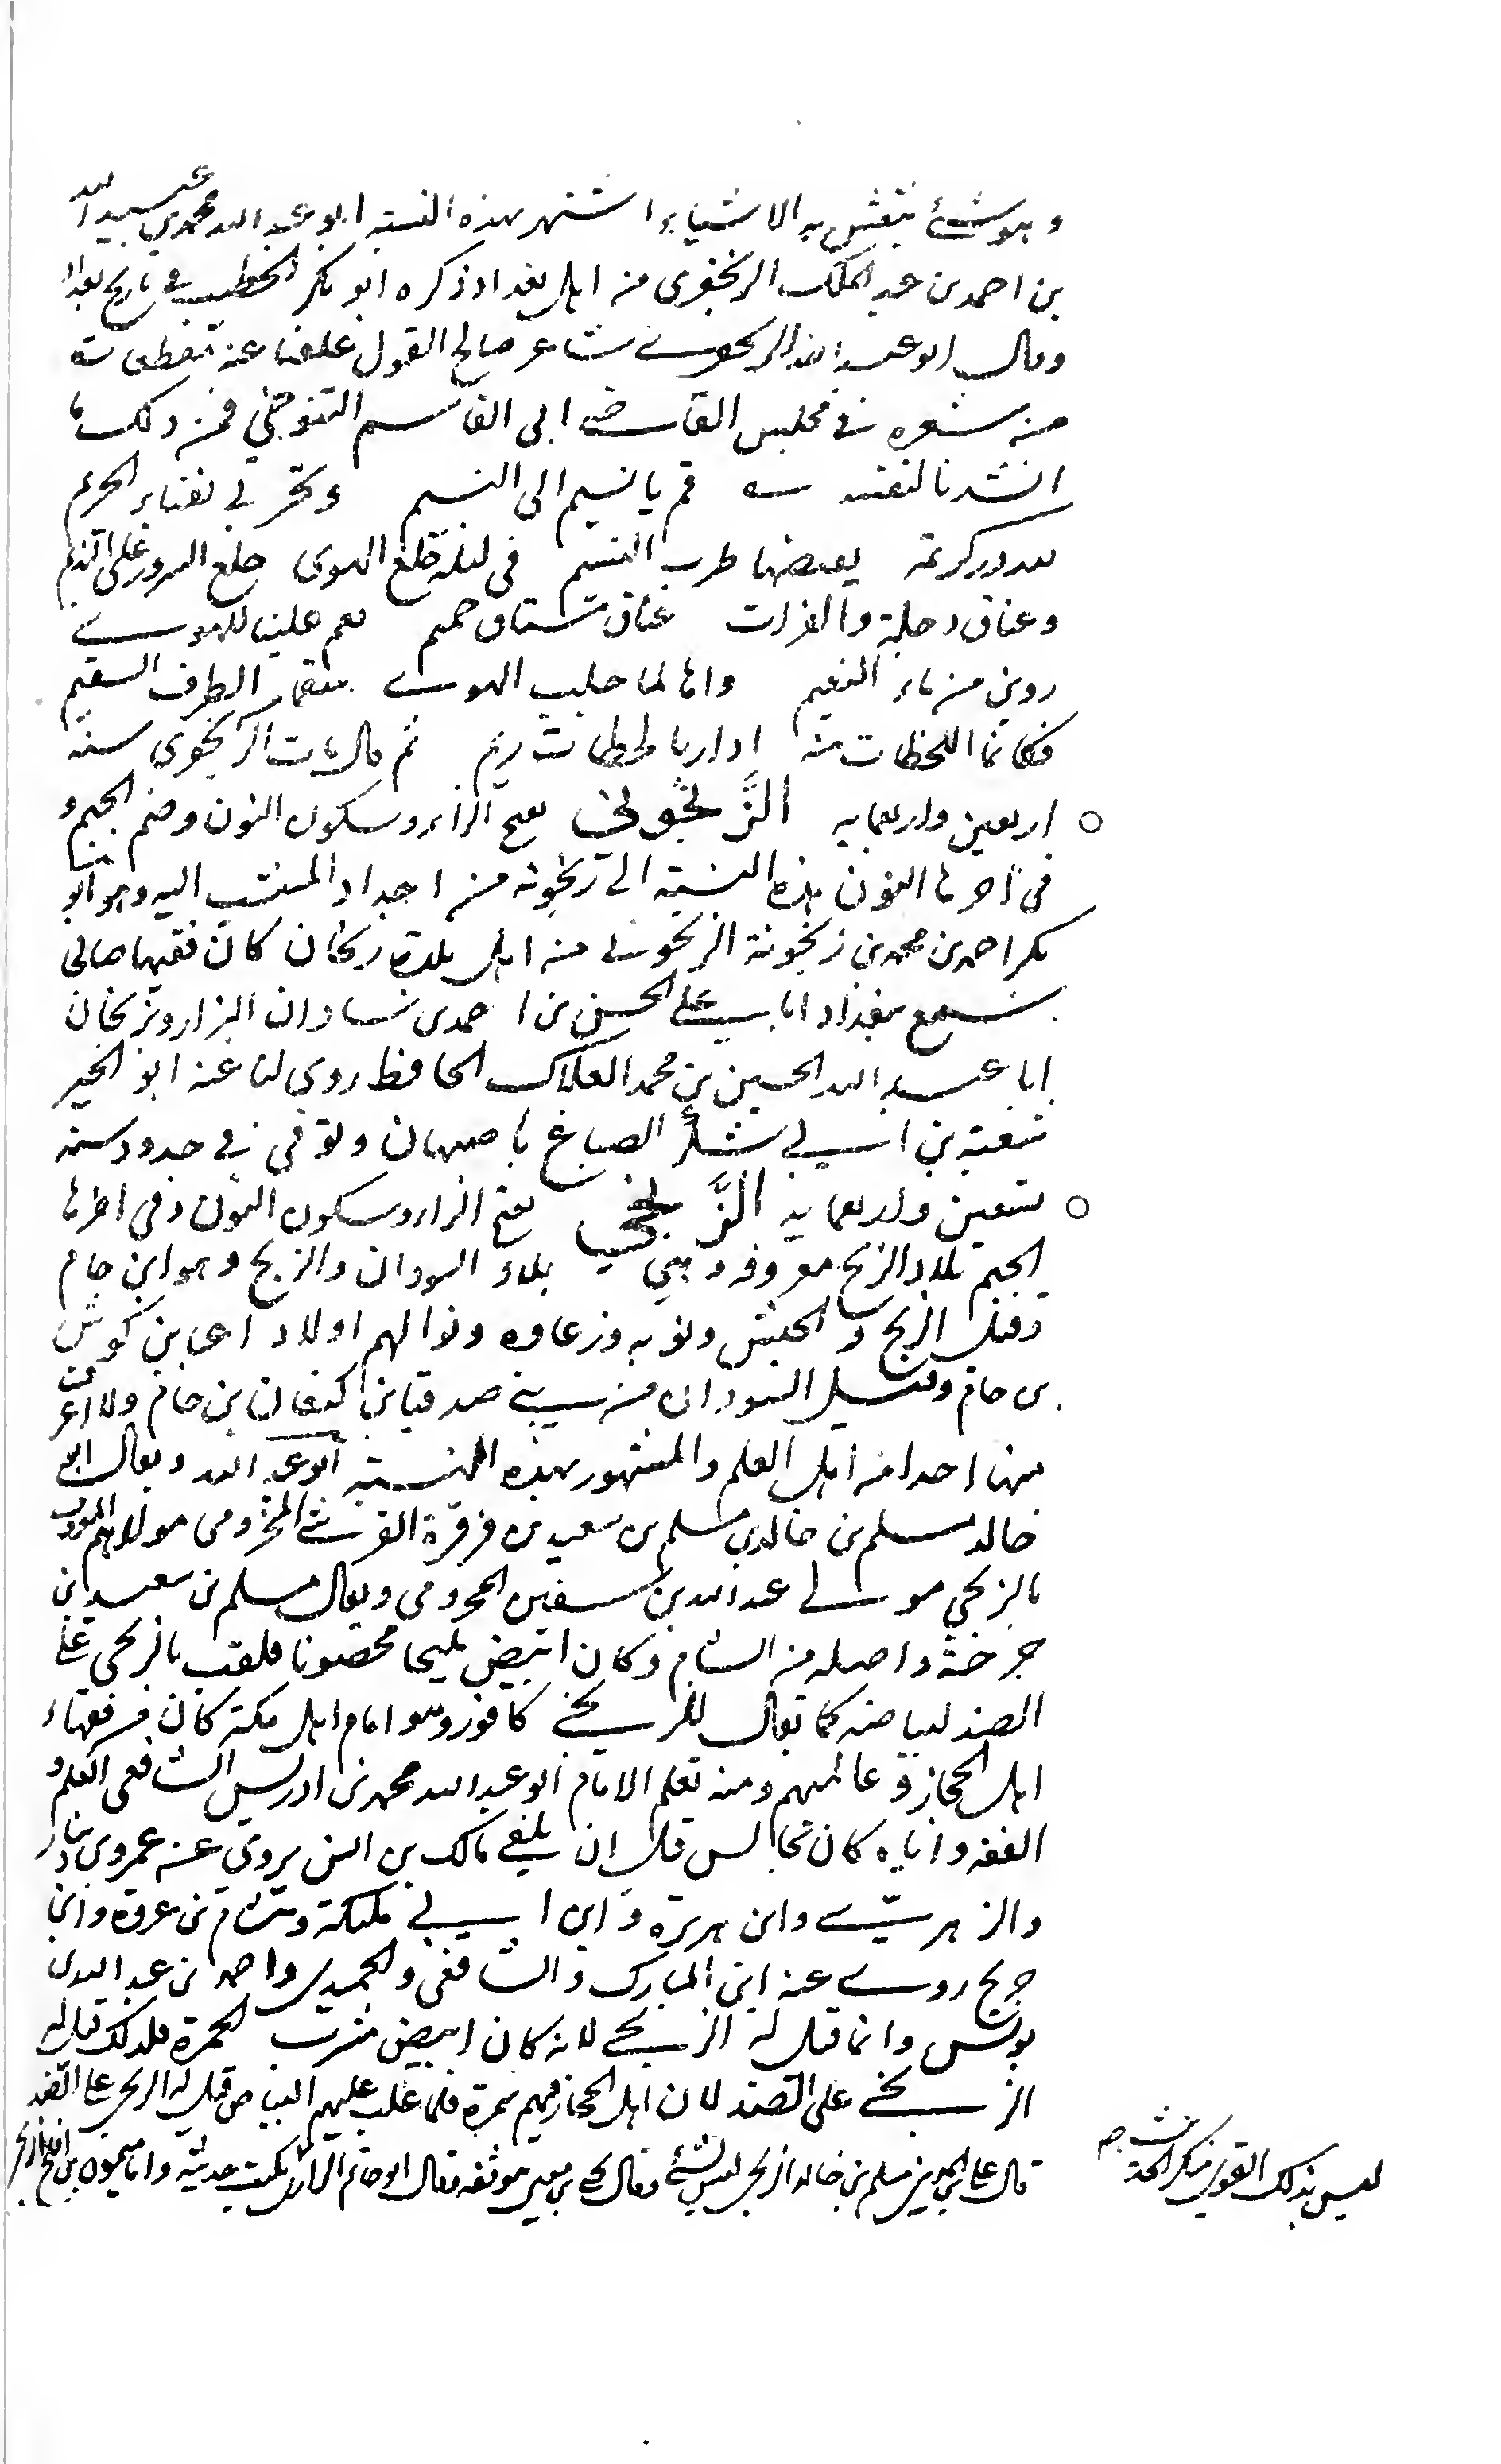 وهو شئ ينقش به الاشياء اشتهر بهذه النسبة ابو عبد الله محمد بن عبيد الله
بن احمد بن عبد الملك الزنجفرى من اهل بغداد ذكره ابو بكر الخطيب في تاريخ بغداد
وقال ابو عبد الله الزنجفري شاعر صالح القول علقنا عنه مقطعات
من شعره في مجلس القاضي ابى القاسم التنوخي فمن ذلك ما
انشدنا لنفسه قم يا نسيم الى النسيم وتحر في بفناء الحريم
كريمة بعضها طرب النسيم في ليلة خلع الهوى خلع السرور على النديم
وعناق دجلة والفرات عناق مشتاق حميم نعم علينا للهوى
روين من ماء النعيم وانا لما جلب الهوى بسقام الطرف السقيم
فكانما اللحظات منه اذا رنا لحظات ريم ثم قال مات الزنجفري سنة
اربعين واربعماية الزَّنجُوني بفتح الزاء وسكون النون وضم الجيم و
في آخرها النون هذه النسبة الى زنجونة من اجداد المنتسب اليه وهو ابو
بكر احمد بن محمد بن زنجونة الزنجوني من اهل بلدة زنجان كان فقيها صالحا
سمع ببغداد ابا علي الحسن بن احمد بن شاذان البزار وبزنجان
ابا عبد الله الحسين بن محمد الفلاكي الحافظ روى لنا عنه ابو الخير
شعبة بن ابي شكر الصباغ باصبهان وتوفى في حدود سنة
تسعين واربعماية الزَّنجي بفتح الزاء وسكون النون وفى اخرها
الجيم بلاد الزنج معروفة وهي بلاد السودان والزنج هو ابن حام
وقيل الزنج والحبش ونوبه وزغاوه اولاد بن كوش
بن حام وقيل السودان من بني صدقيا بن كنعان بن حام ولا اعرف
منها احدا من اهل العلم والمشهور بهذه النسبة ابو عبد الله ويقال ابو
خالد مسلم بن خالد بن مسلم بن سعيد بن قرقرة القرشي المخزومى مولاهم المعروف
بالزنجي مولى عبد الله بن سفين المخزومى ويقال مسلم بن سعيد بن
جرجة واصله من الشام وكان ابيض مليحا فلقب بالزنجي على
الضد لبياضه كما يقال للزنجي كافور وهو امام اهل مكة كان من فقهاء
اهل الحجاز وعالمهم ومنه تعلم الامام ابو عبد الله محمد بن ادريس الشافعى العلم و
الفقه واياه كان يجالس قبل ان يلقى مالك بن انس يروى عنه عمرو بن دينار
والزهري وابن ابي مليكة وهشام بن عروة وابن
جريج روى عنه ابن المبارك والشافعى والحميدى واحمد بن عبد الله بن
يونس وانما قيل له الزنجي لانه كان ابيض مشرب الحمرة فلذلك قيل له
الزنجي على الضد لان اهل الحجاز فيهم سمرة فلما غلب عليهم البياض قيل له الزنجي على الضد
قال علي بن المديني مسلم بن خالد الزنجي ليس بشئ وقال يحيى بن معين هو ثقة وقال ابو حاتم الرازي يكتب حديثه واما ميمون بن افلح الزنجي
ليس بذلك القوى منكر الحديث